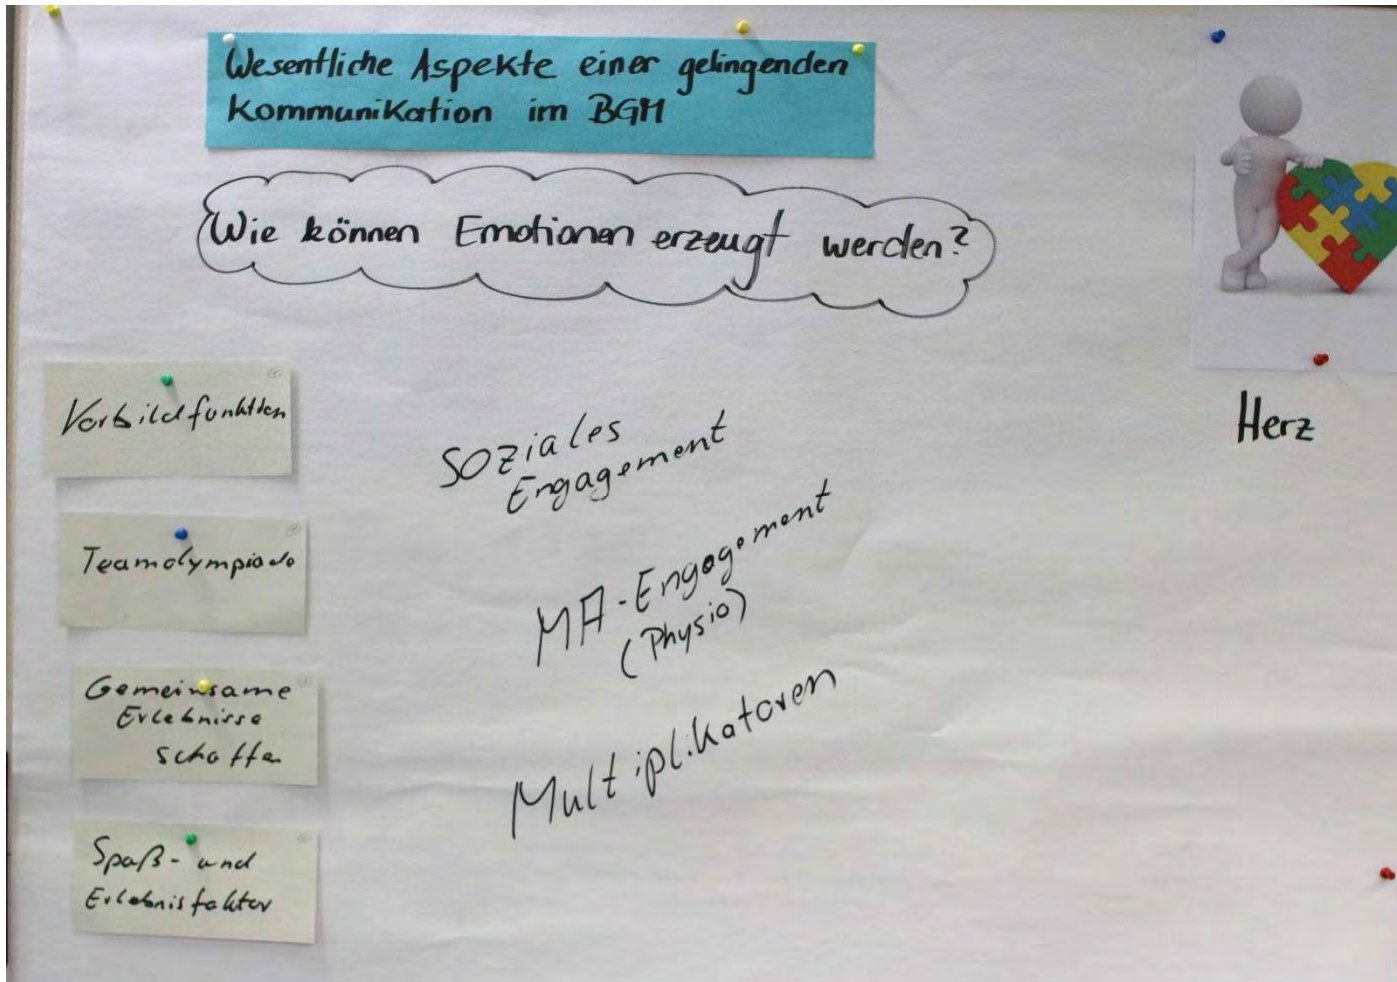 Wesentliche Aspekte einer gelingenden
Kommunikation im BGM
Wie können Emotionen erzeugt werden?
Herz
Vorbildfunktion
Teamolympiade
Gemeinsame
Erlebnisse
schaffen
Spaß- und
Erlebnisfaktor
Soziales
Engagement
MA-Engagement
(Physio)
Multiplikatoren